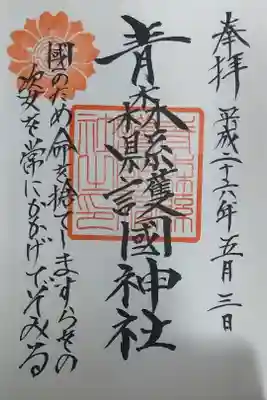 奉拝 平成二十六年五月三日
青森県護國神社
國のため命を捨てしますらをの
姿を常にあふぎてぞみる